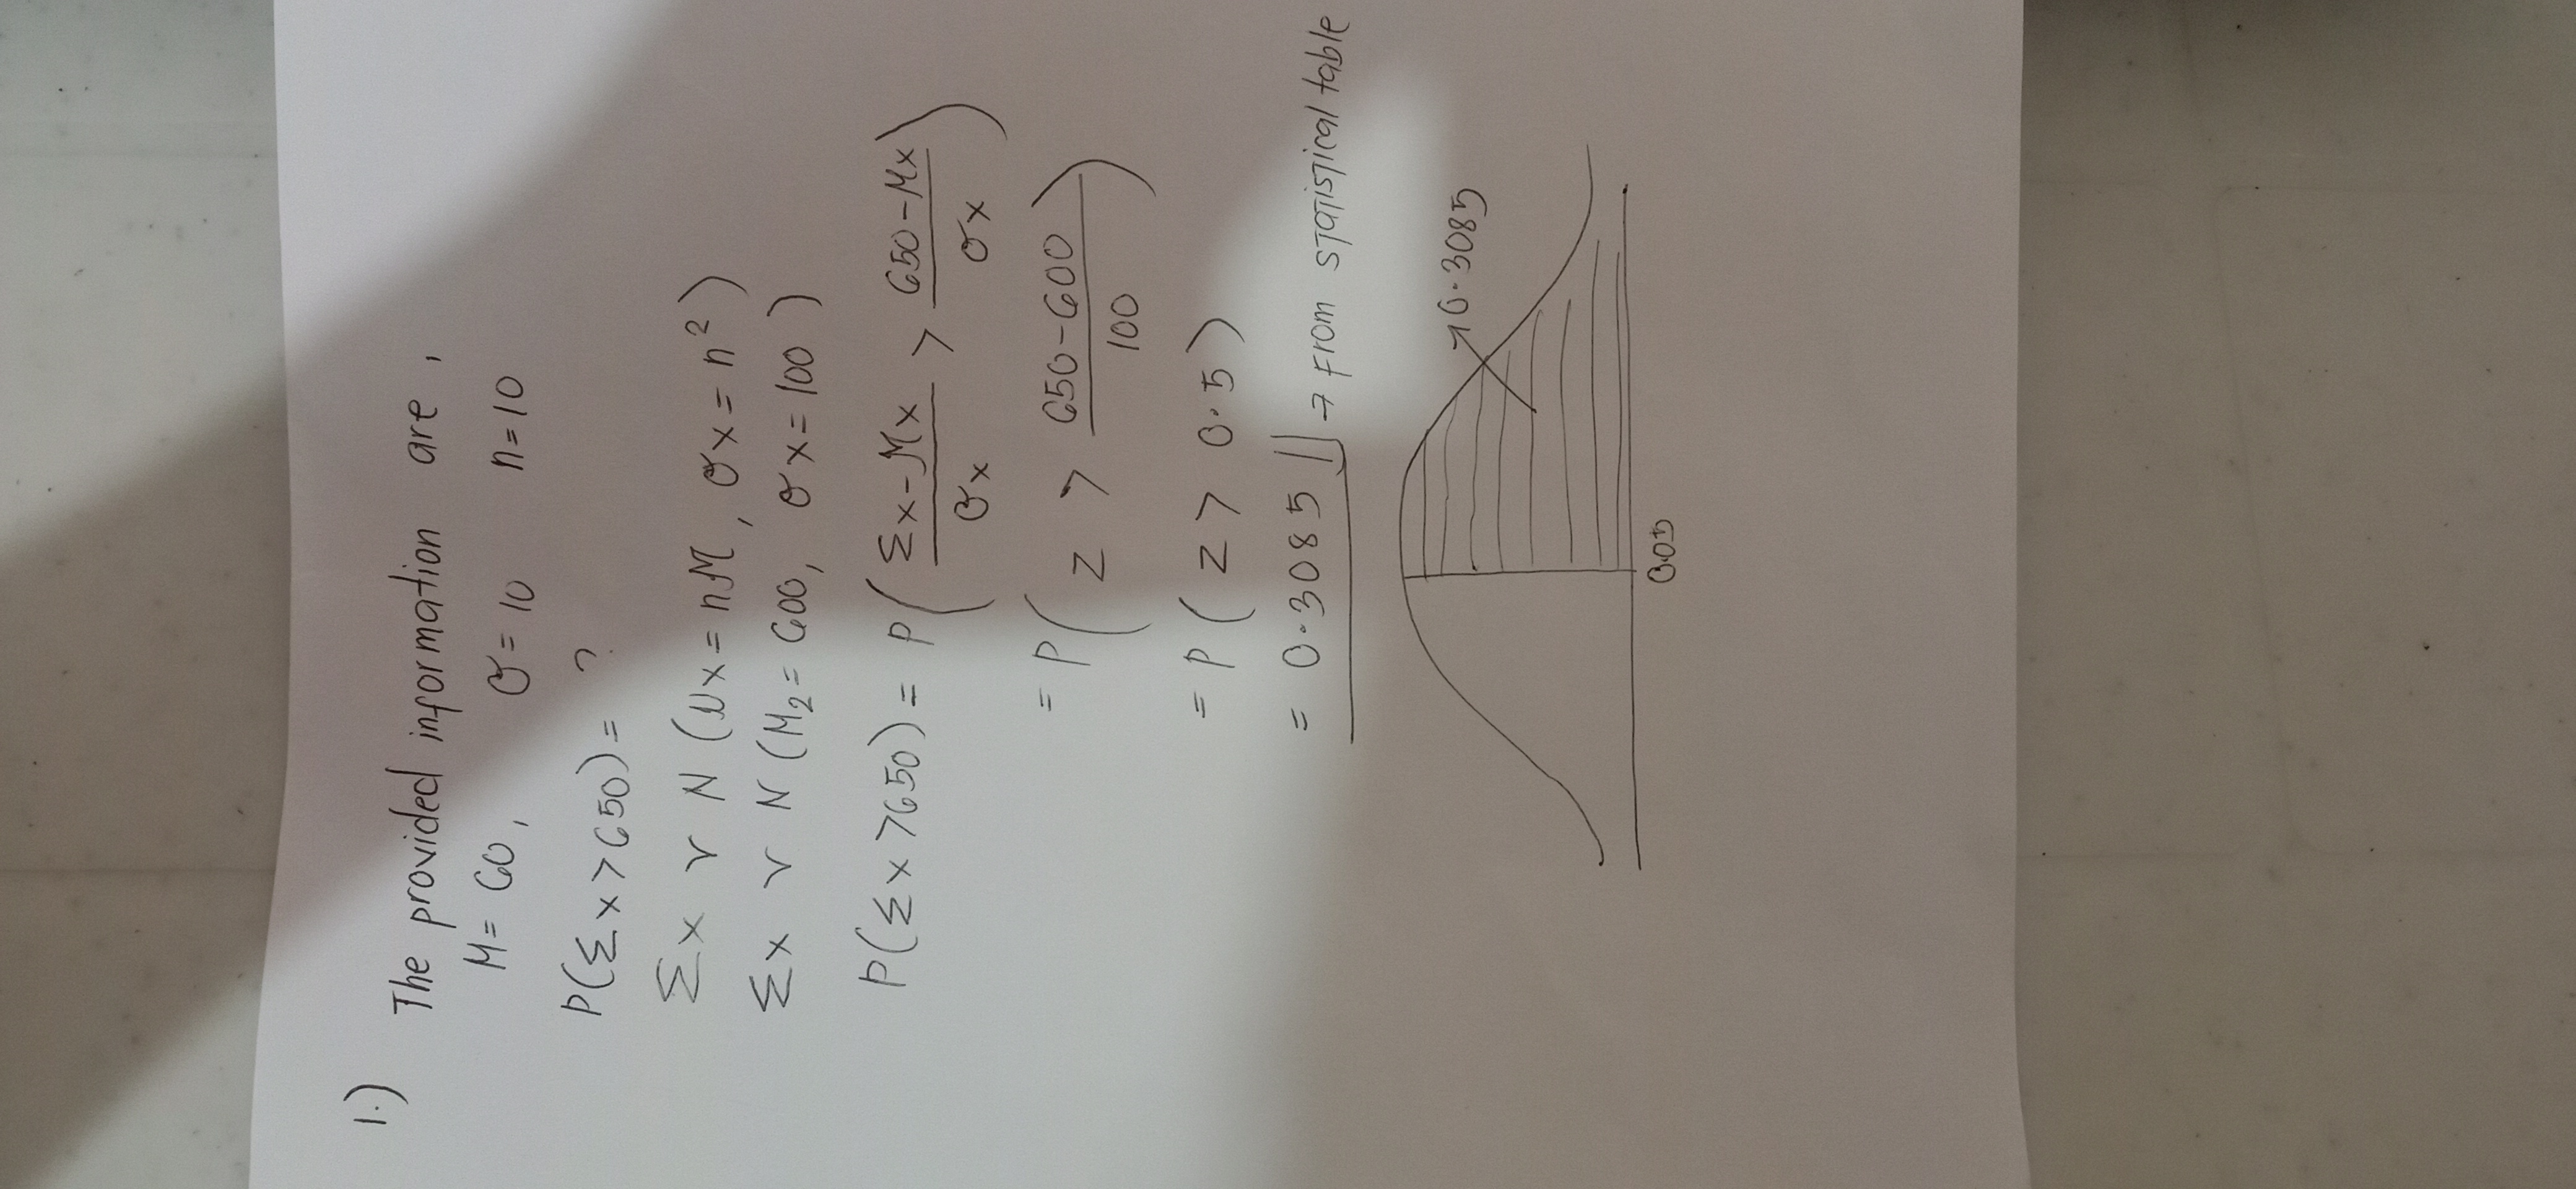 1.) The provided information are,
M = 60, σ = 10 n = 10
P(Σx > 650) = ?
Σx ~ N (μx = nM, σx = n²)
Σx ~ N (M₂ = 600, σx = 100)
P(Σx > 650) = P( (Σx - Mx)/σx > (650 - Mx)/σx )
= P( z > (650 - 600)/100 )
= P( z > 0.5)
= 0.3085 → From statistical table
→ 0.3085
0.05